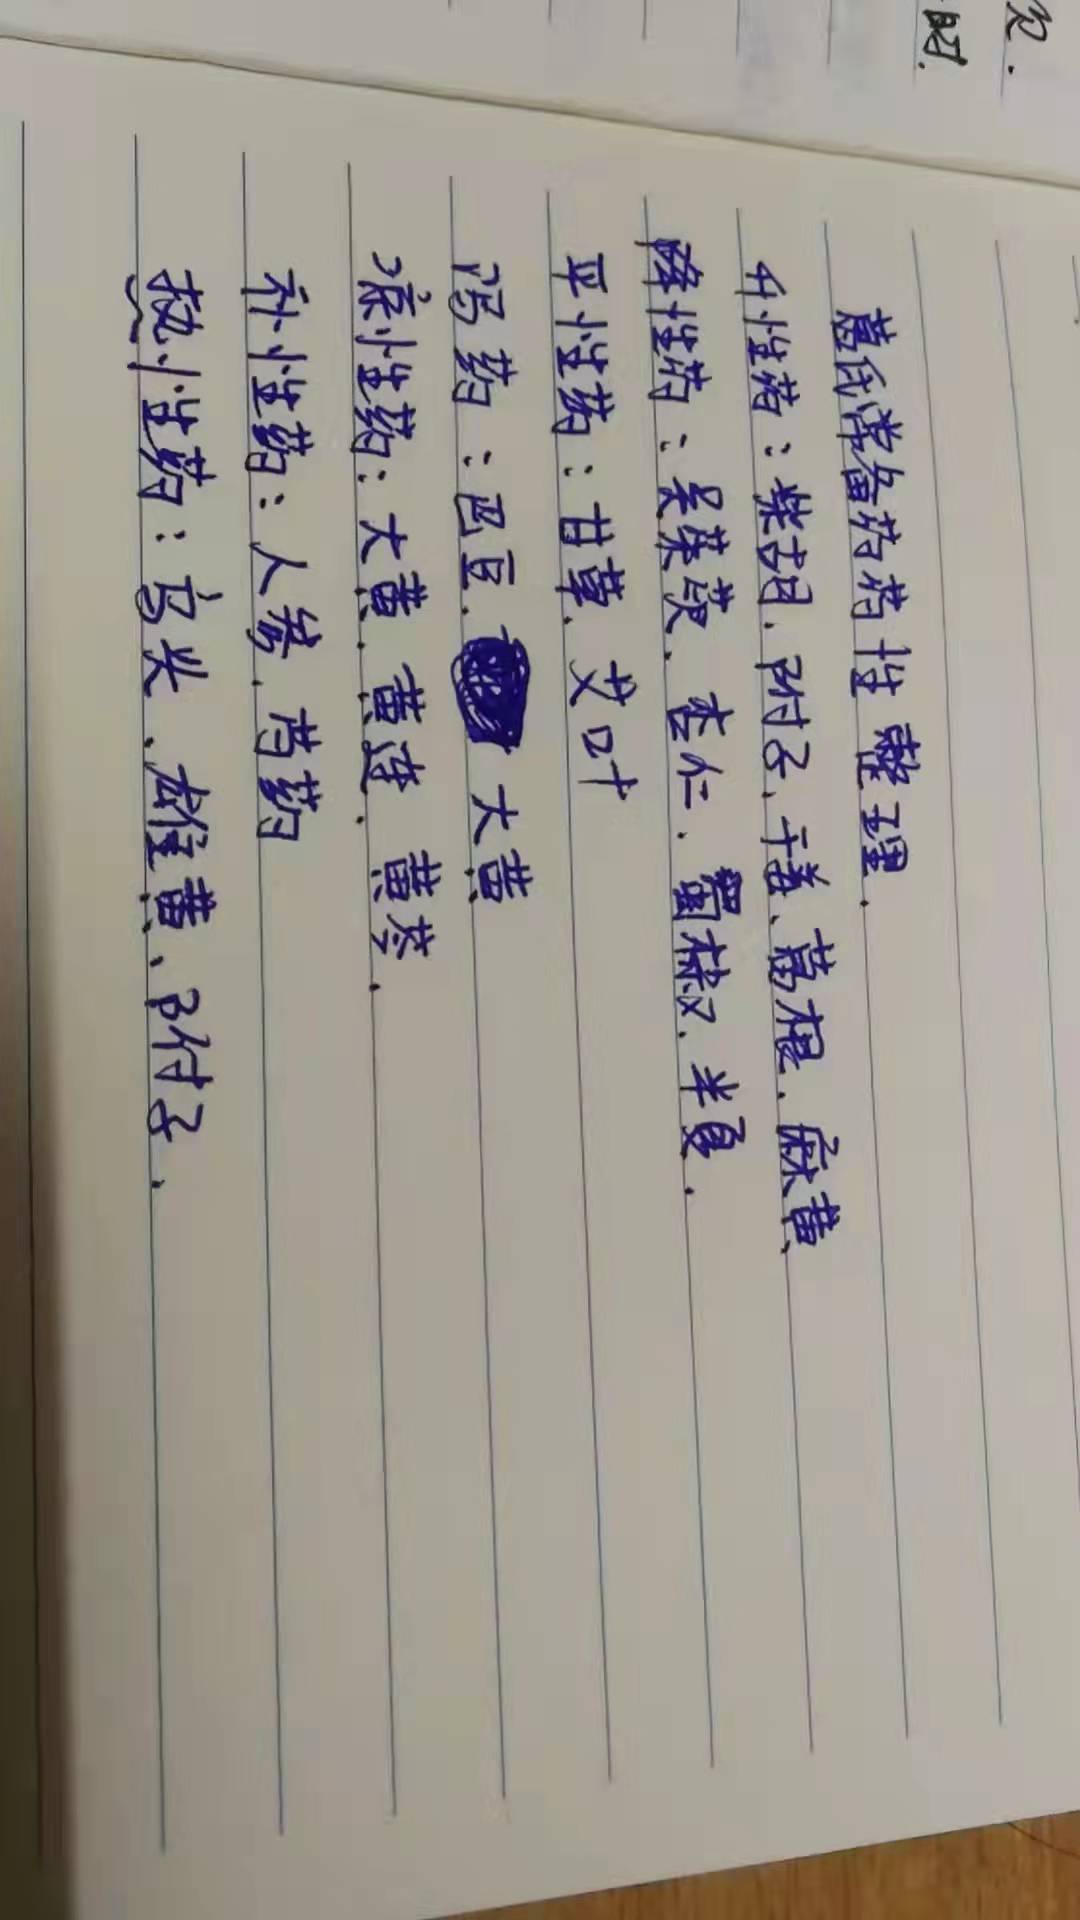 葛氏常备药药性整理.
升性药：柴胡.附子、干姜、葛根.麻黄、
降性药：吴茱萸.杏仁.蜀椒.半夏.
平性药：甘草.艾叶
泻药：巴豆.大黄
凉性药：大黄.黄连.黄芩.
补性药：人参.芍药
热性药：乌头、雄黄、附子.